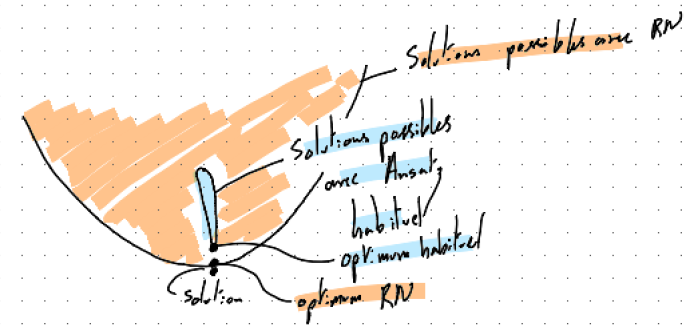 Solutions possibles avec RN
Solutions possibles
avec Ansatz
habituel
optimum habituel
solution
optimum RN